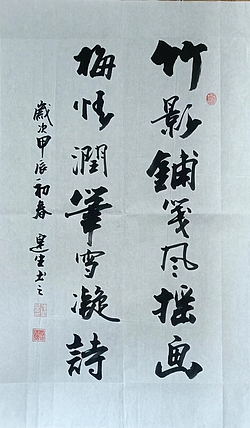 竹影鋪箋風揺画
梅情潤筆雪凝詩
歲次甲辰初春 建生书之